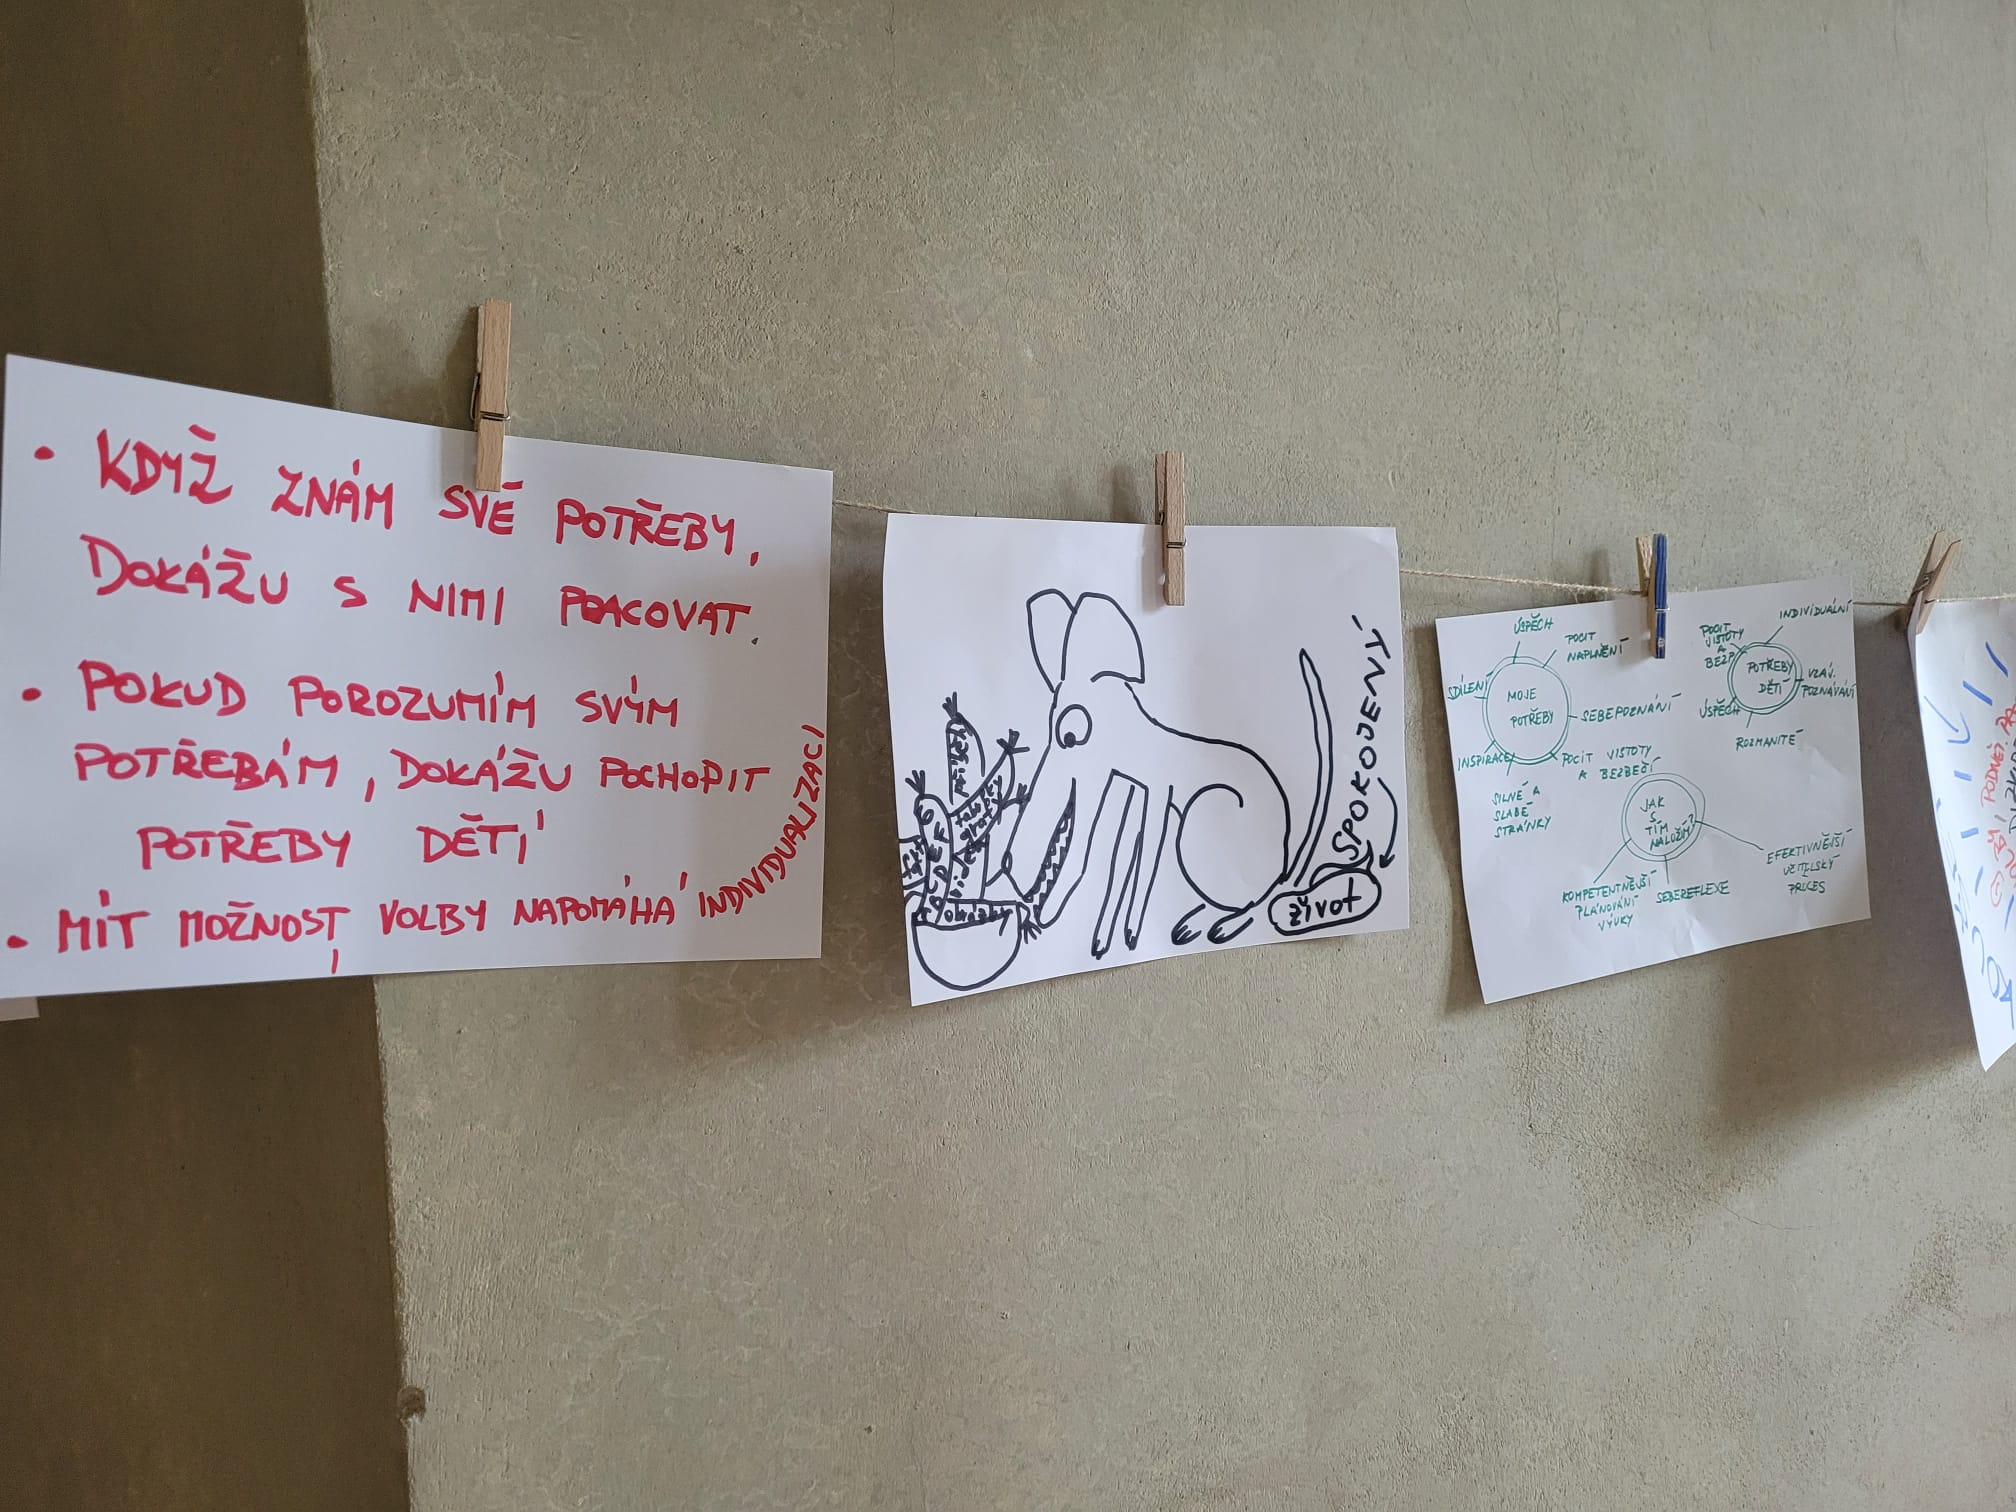 • KDYŽ ZNÁM SVÉ POTŘEBY,
DOKÁŽU S NIMI PRACOVAT.
• POKUD POROZUMÍM SVÝM
POTŘEBÁM, DOKÁŽU POCHOPIT
POTŘEBY DĚTÍ
• MÍT MOŽNOST VOLBY NAPOMÁHÁ INDIVIDUALIZACI
příběh
ABCDEF
obrázky
SPOKOJENÝ
život
MOJE
POTŘEBY
ÚSPĚCH
POCIT
NAPLNĚNÍ
SDÍLENÍ
SEBEPOZNÁNÍ
INSPIRACE
POCIT JISTOTY
A BEZBEČÍ
SILNÉ A
SLABÉ
STRÁNKY
POTŘEBY
DĚTÍ
POCIT
JISTOTY
A
BEZP.
INDIVIDUÁLNÍ
VZÁJ.
POZNÁVÁNÍ
ÚSPĚCH
ROZMANITÉ
JAK
S
TÍM
NALOŽÍM?
KOMPETENTNĚJŠÍ
PLÁNOVÁNÍ
VÝUKY
SEBEREFLEXE
EFEKTIVNĚJŠÍ
UČITELSKÝ
PROCES